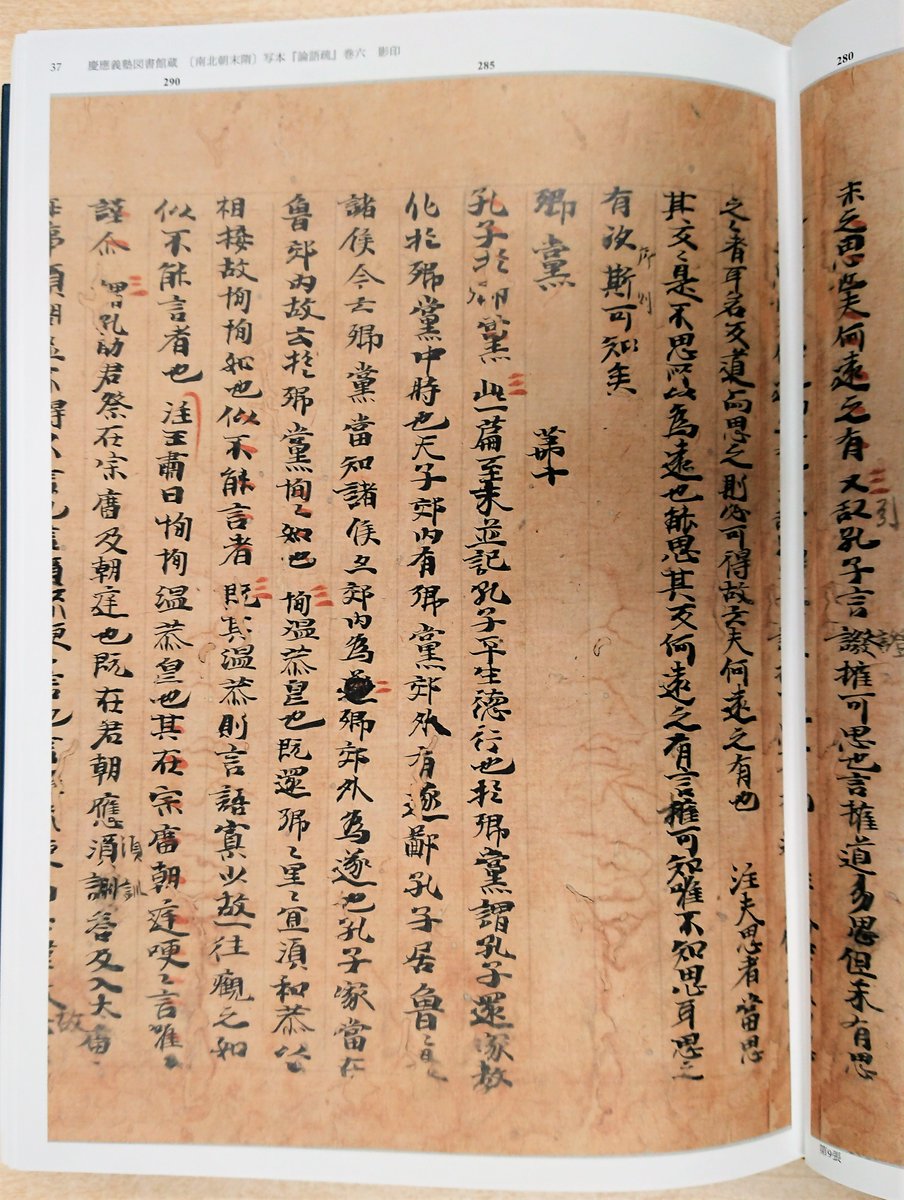 37 慶應義塾図書館蔵 〔南北朝末隋〕写本『論語疏』巻六 影印
280
285
290
未之思也夫何遠之有 又引孔子言證權可思也言權道易思但未有思
之者耳若反道而思之則必可得故云夫何遠之有也 注夫思者當思
其反〻是不思所以為遠也能思其反何遠之有言權可知唯不知思耳思之
有次斯可知矣
序
郷黨 第十
孔子於郷黨 此一篇至末並記孔子平生德行也於郷黨謂孔子還家教
化於郷黨中時也天子郊内有郷黨郊外有遂鄙孔子居魯〻是
諸侯今云郷黨當知諸侯亦郊内為郷郊外為遂也孔子家當在
魯郊内故云於郷黨恂〻如也 恂温恭皃也既還郷〻里〻宜須和恭以
相接故恂恂如也似不能言者 既其温恭則言語寡少故一往觀之如
似不能言者也 注王肅曰恂恂温恭皃也其在宗廟朝庭便〻言唯
謹尒 謂孔助君祭在宗廟及朝庭也既在君朝應須酬荅及入大廟
須
故
第9張